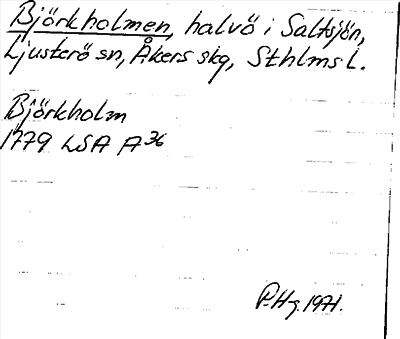 Björkholmen, halvö i Saltsjön,
Ljusterö sn, Åkers skg, Sthlms l.
Björkholm
1779 LSA A 36
P.Hg. 1971.